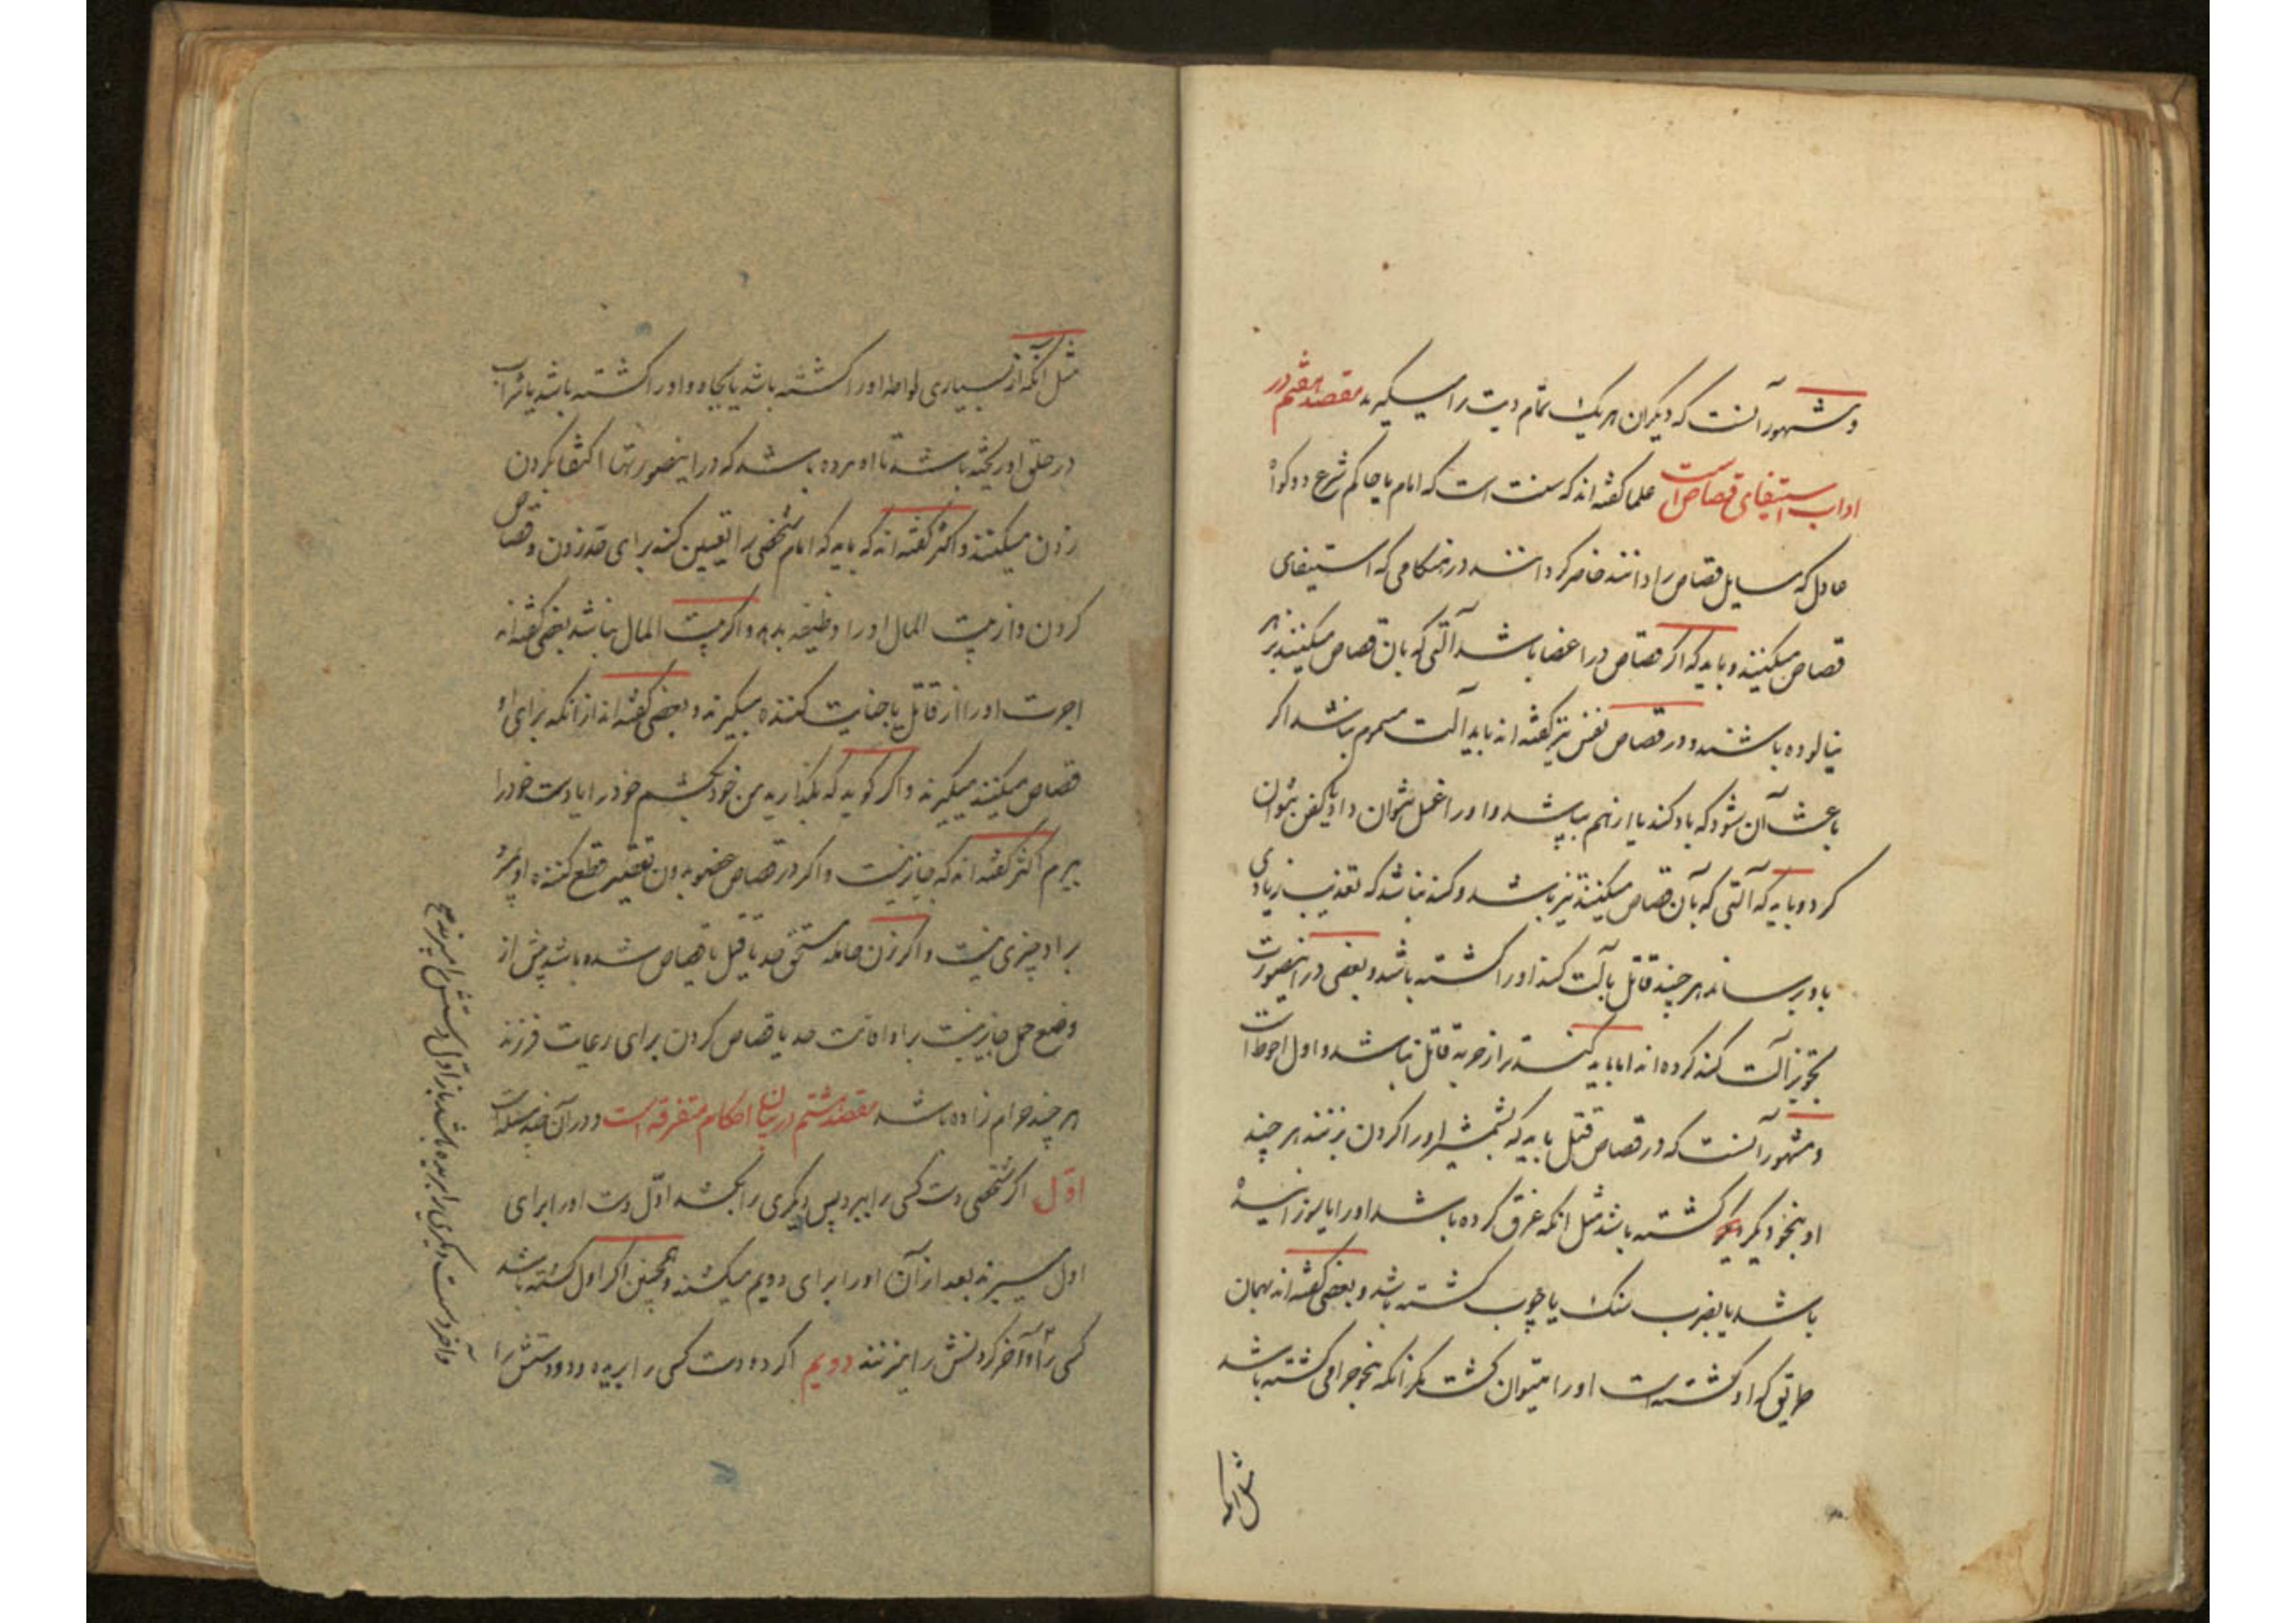 و مشهور آنست که دیگران هر یک تمام دیت را میگیرند مقصد هفتم در
اداب استیفای قصاص است علما گفته‌اند که سنت است که امام یا حاکم شرع دو گواه
عادل که مسایل قصاص را دانند حاضر گردانند در هنگامی که استیفای
قصاص میکنند و باید که اگر قصاص در اعضا باشد آلتی که بان قصاص میکنند بزهر
نیالوده باشند و در قصاص نفس نیز گفته‌اند باید آلت مسموم نباشد اگر
باعث آن شود که باد کند یا از هم بپاشد و او را غسل نتوان داد یا کفن نتوان
کرد و باید که آلتی که بآن قصاص میکنند تیز باشد و کند نباشد که تعذیب زیادی
باو رساند هر چند قاتل بآلت کند او را کشته باشد و بعضی در اینصورت
تجویز آلت کند کرده‌اند اما باید کندتر از حربه قاتل نباشد و اول احوط است
و مشهور آنست که در قصاص قتل باید که بشمشیر او را گردن بزنند هر چند
او بنحو دیگر کشته باشد مثل انکه غرق کرده باشد او را یا سوزانیده
باشد یا بضرب سنک یا چوب کشته باشد و بعضی گفته‌اند بهمان
طریق که او کشته است او را میتوان کشت مگر انکه بنحو حرامی کشته باشد
مثل انکه
مثل آنکه از بسیاری لواطه او را کشته باشد یا بجاه او را کشته باشد یا شراب
در حلق او ریخته باشد تا او مرده باشد که در اینصورتها اکتفا بگردن
زدن میکنند و اکثر گفته‌اند که باید که امام شخصی را تعیین کند برای حد زدن و قصاص
کردن و از بیت المال او را وظیفه بدهد و اگر بیت المال نباشد بعضی گفته‌اند
اجرت او را از قاتل یا جنایت کننده میگیرند و بعضی گفته‌اند از انکه برای او
قصاص میکنند میگیرند و اگر گوید که بگذارید من خود بکشم خود را یا دست خود را
ببرم اکثر گفته‌اند که جایز نیست و اگر در قصاص عضو بدون تقصیر قطع کننده او بمیرد
بر او چیزی نیست و اگر زن حامله مستحق حد یا قتل یا قصاص شده باشد پیش از
وضع حمل جایز نیست بر او اقامت حد یا قصاص کردن برای رعایت فرزند
هر چند حرام زاده باشد مقصد هشتم در بیان احکام متفرقه است و در آن چند مسئله است
اول اگر شخصی دست کسی را ببرد پس دیگری را بکشد اوّل دست او را برای
اول میبرند بعد از آن او را برای دویم میکشند و همچنین اگر اول کشته باشد
کسی را و آخر گردنش را میزنند دویم اگر ده دست کسی را بریده و دو دستش را
و آخر دست دیگری را بریده باشد باز اول دستش را میبرند